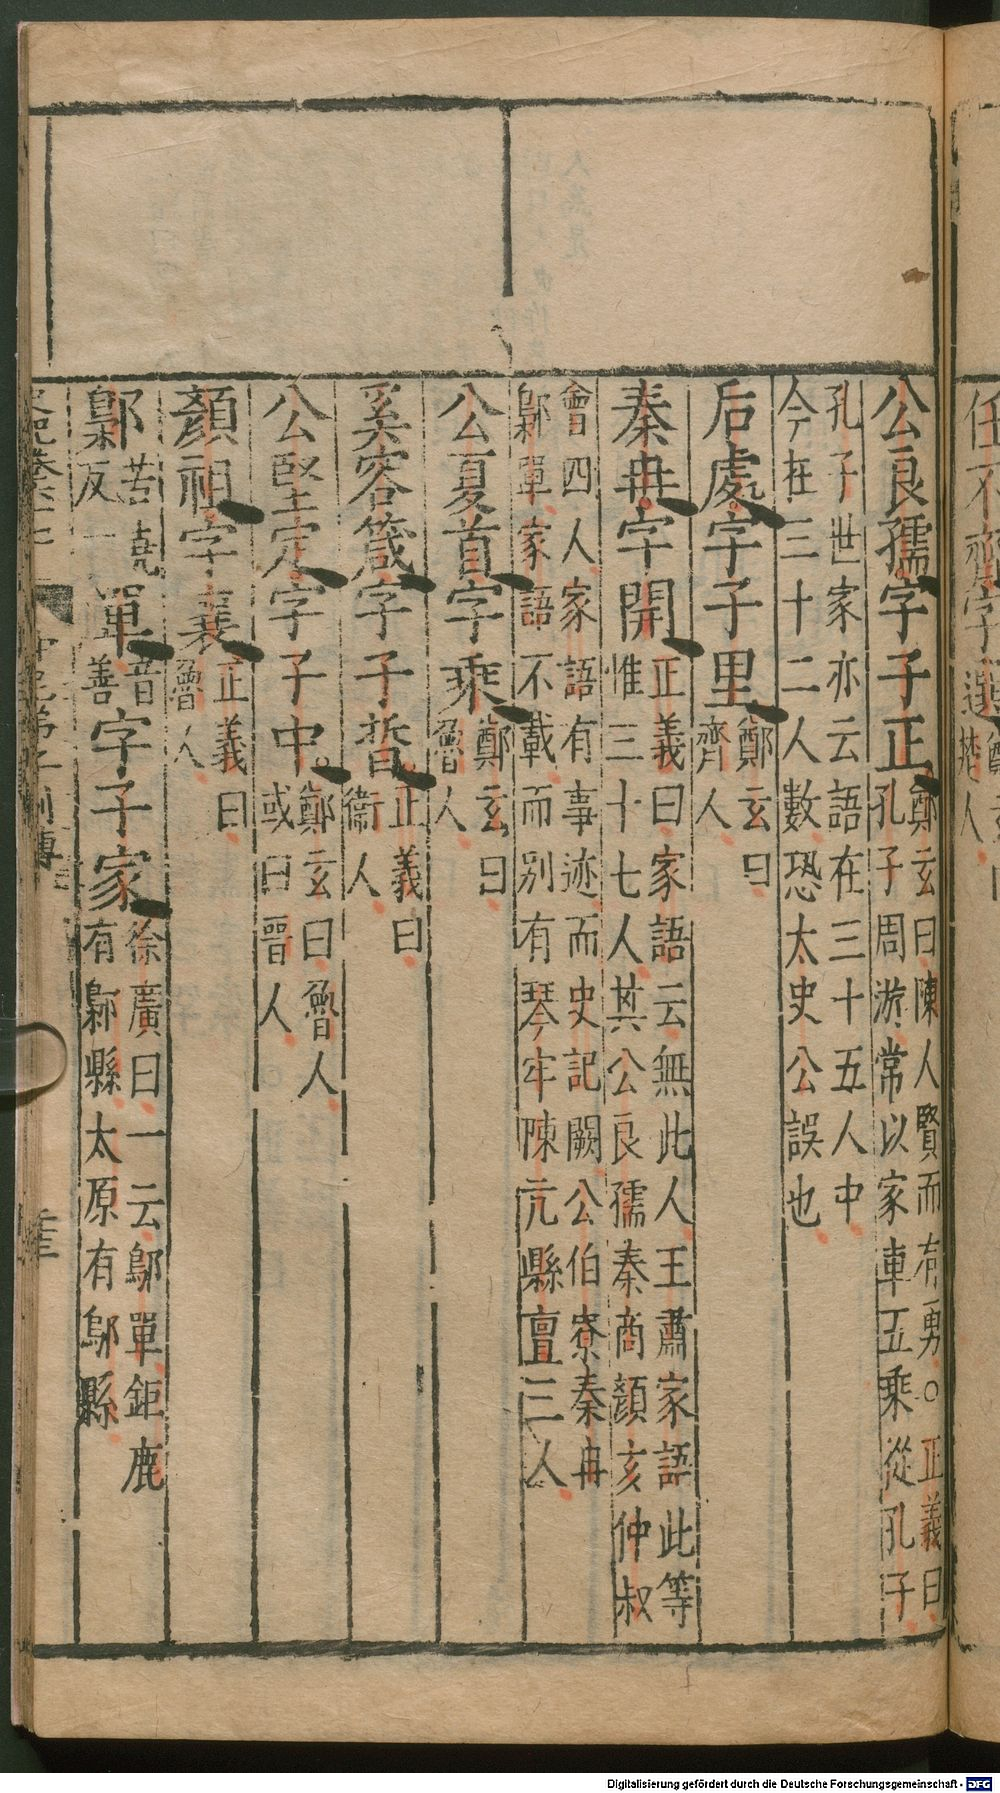 公良孺字子正鄭玄曰陳人賢而有勇○正義曰
孔子周游常以家車五乘從孔子
孔子世家亦云語在三十五人中
今在三十二人數恐太史公誤也
后處字子里鄭玄曰
齊人
秦冉字開正義曰家語云無此人王肅家語此等
惟三十七人其公良孺秦商顏亥仲叔
會四人家語有事迹而史記闕公伯寮秦冉
鄡單家語不載而別有琴牢陳亢縣亶三人
公夏首字乘鄭玄曰
魯人
奚容箴字子晳正義曰
衞人
公堅定字子中鄭玄曰魯人
或曰晉人
顏祖字襄正義曰
魯人
鄡苦堯
反一
單音
善
字子家徐廣曰一云鄔單鉅鹿
有鄡縣太原有鄔縣
任不齊字選
楚人
Digitalisierung gefördert durch die Deutsche Forschungsgemeinschaft - DFG